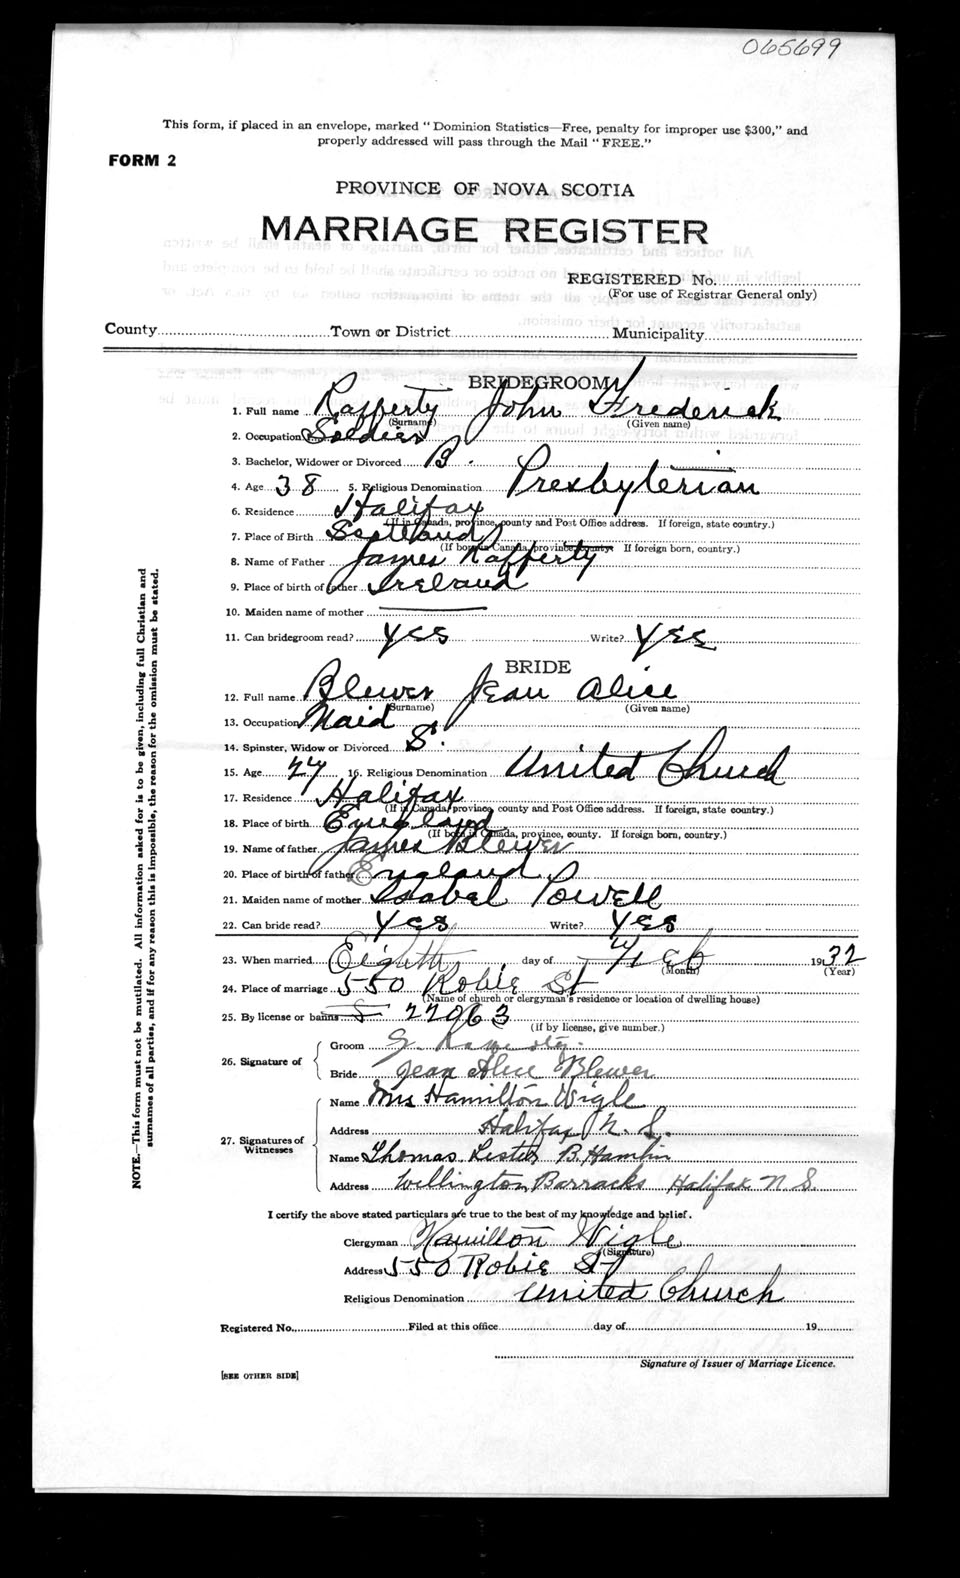 065699
This form, if placed in an envelope, marked "Dominion Statistics—Free, penalty for improper use $300," and
properly addressed will pass through the Mail "FREE."
FORM 2
PROVINCE OF NOVA SCOTIA
MARRIAGE REGISTER
REGISTERED No.
(For use of Registrar General only)
County Town or District Municipality
BRIDEGROOM
1. Full name Rafferty John Frederick
(Surname) (Given name)
2. Occupation Soldier
3. Bachelor, Widower or Divorced B.
4. Age 38 5. Religious Denomination Presbyterian
6. Residence Halifax
(If in Canada, province, county and Post Office address. If foreign, state country.)
7. Place of Birth Scotland
(If born in Canada, province, county. If foreign born, country.)
8. Name of Father James Rafferty
9. Place of birth of father Ireland
10. Maiden name of mother
11. Can bridegroom read? yes Write? yes
BRIDE
12. Full name Blewer Jean Alice
(Surname) (Given name)
13. Occupation Maid
14. Spinster, Widow or Divorced S.
15. Age 27 16. Religious Denomination United Church
17. Residence Halifax
(If in Canada, province, county and Post Office address. If foreign, state country.)
18. Place of birth England
(If born in Canada, province, county. If foreign born, country.)
19. Name of father James Blewer
20. Place of birth of father England
21. Maiden name of mother Isabel Powell
22. Can bride read? Yes Write? Yes
23. When married Eighth day of Feb 1932
(Month) (Year)
24. Place of marriage 550 Robie St
(Name of church or clergyman's residence or location of dwelling house)
25. By license or banns 22963
(If by license, give number.)
26. Signature of
Groom J. Rafferty.
Bride Jean Alice Blewer
27. Signatures of Witnesses
Name Mrs Hamilton Wigle
Address Halifax N. S.
Name Thomas Lester B. Hamlin
Address Willington Barracks Halifax N. S.
I certify the above stated particulars are true to the best of my knowledge and belief.
Clergyman Hamilton Wigle
(Signature)
Address 550 Robie St
Religious Denomination United Church
Registered No. Filed at this office day of 19
Signature of Issuer of Marriage Licence.
[SEE OTHER SIDE]
NOTE.—This form must not be mutilated. All information asked for is to be given, including full Christian and
surnames of all parties, and if for any reason this is impossible, the reason for the omission must be stated.